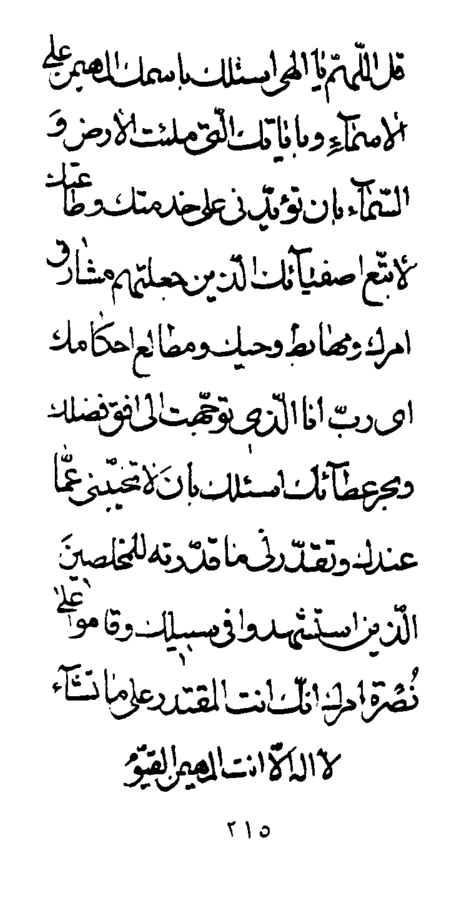 قل اللّهمّ يا الهی اسئلك باسمك المهيمن علی
الاسمآءِ و باياتك الّتی ملئت الأرض وَ
السّمآء بان تؤيّدنی علی خدمتك و طاعتك
لأتّبع اصفيآئك الّذين جعلتهم مشارق
امرك و مهابط وحيك و مطالع احكامك
ای ربّ انا الّذی توجّهت الی افق فضلك
و بحر عطآئك اسئلك بان لا تخيّبنی عمّا
عندك و تقدّر لی ما قدّرته للمخلصينَ
الّذين استشهدوا فی سبيلك و قاموا علی
نُصْرة امرك انّك انت المقتدر علی ما تشآء
لا اله الّا انت المهيمن القيّوم
٢١٥